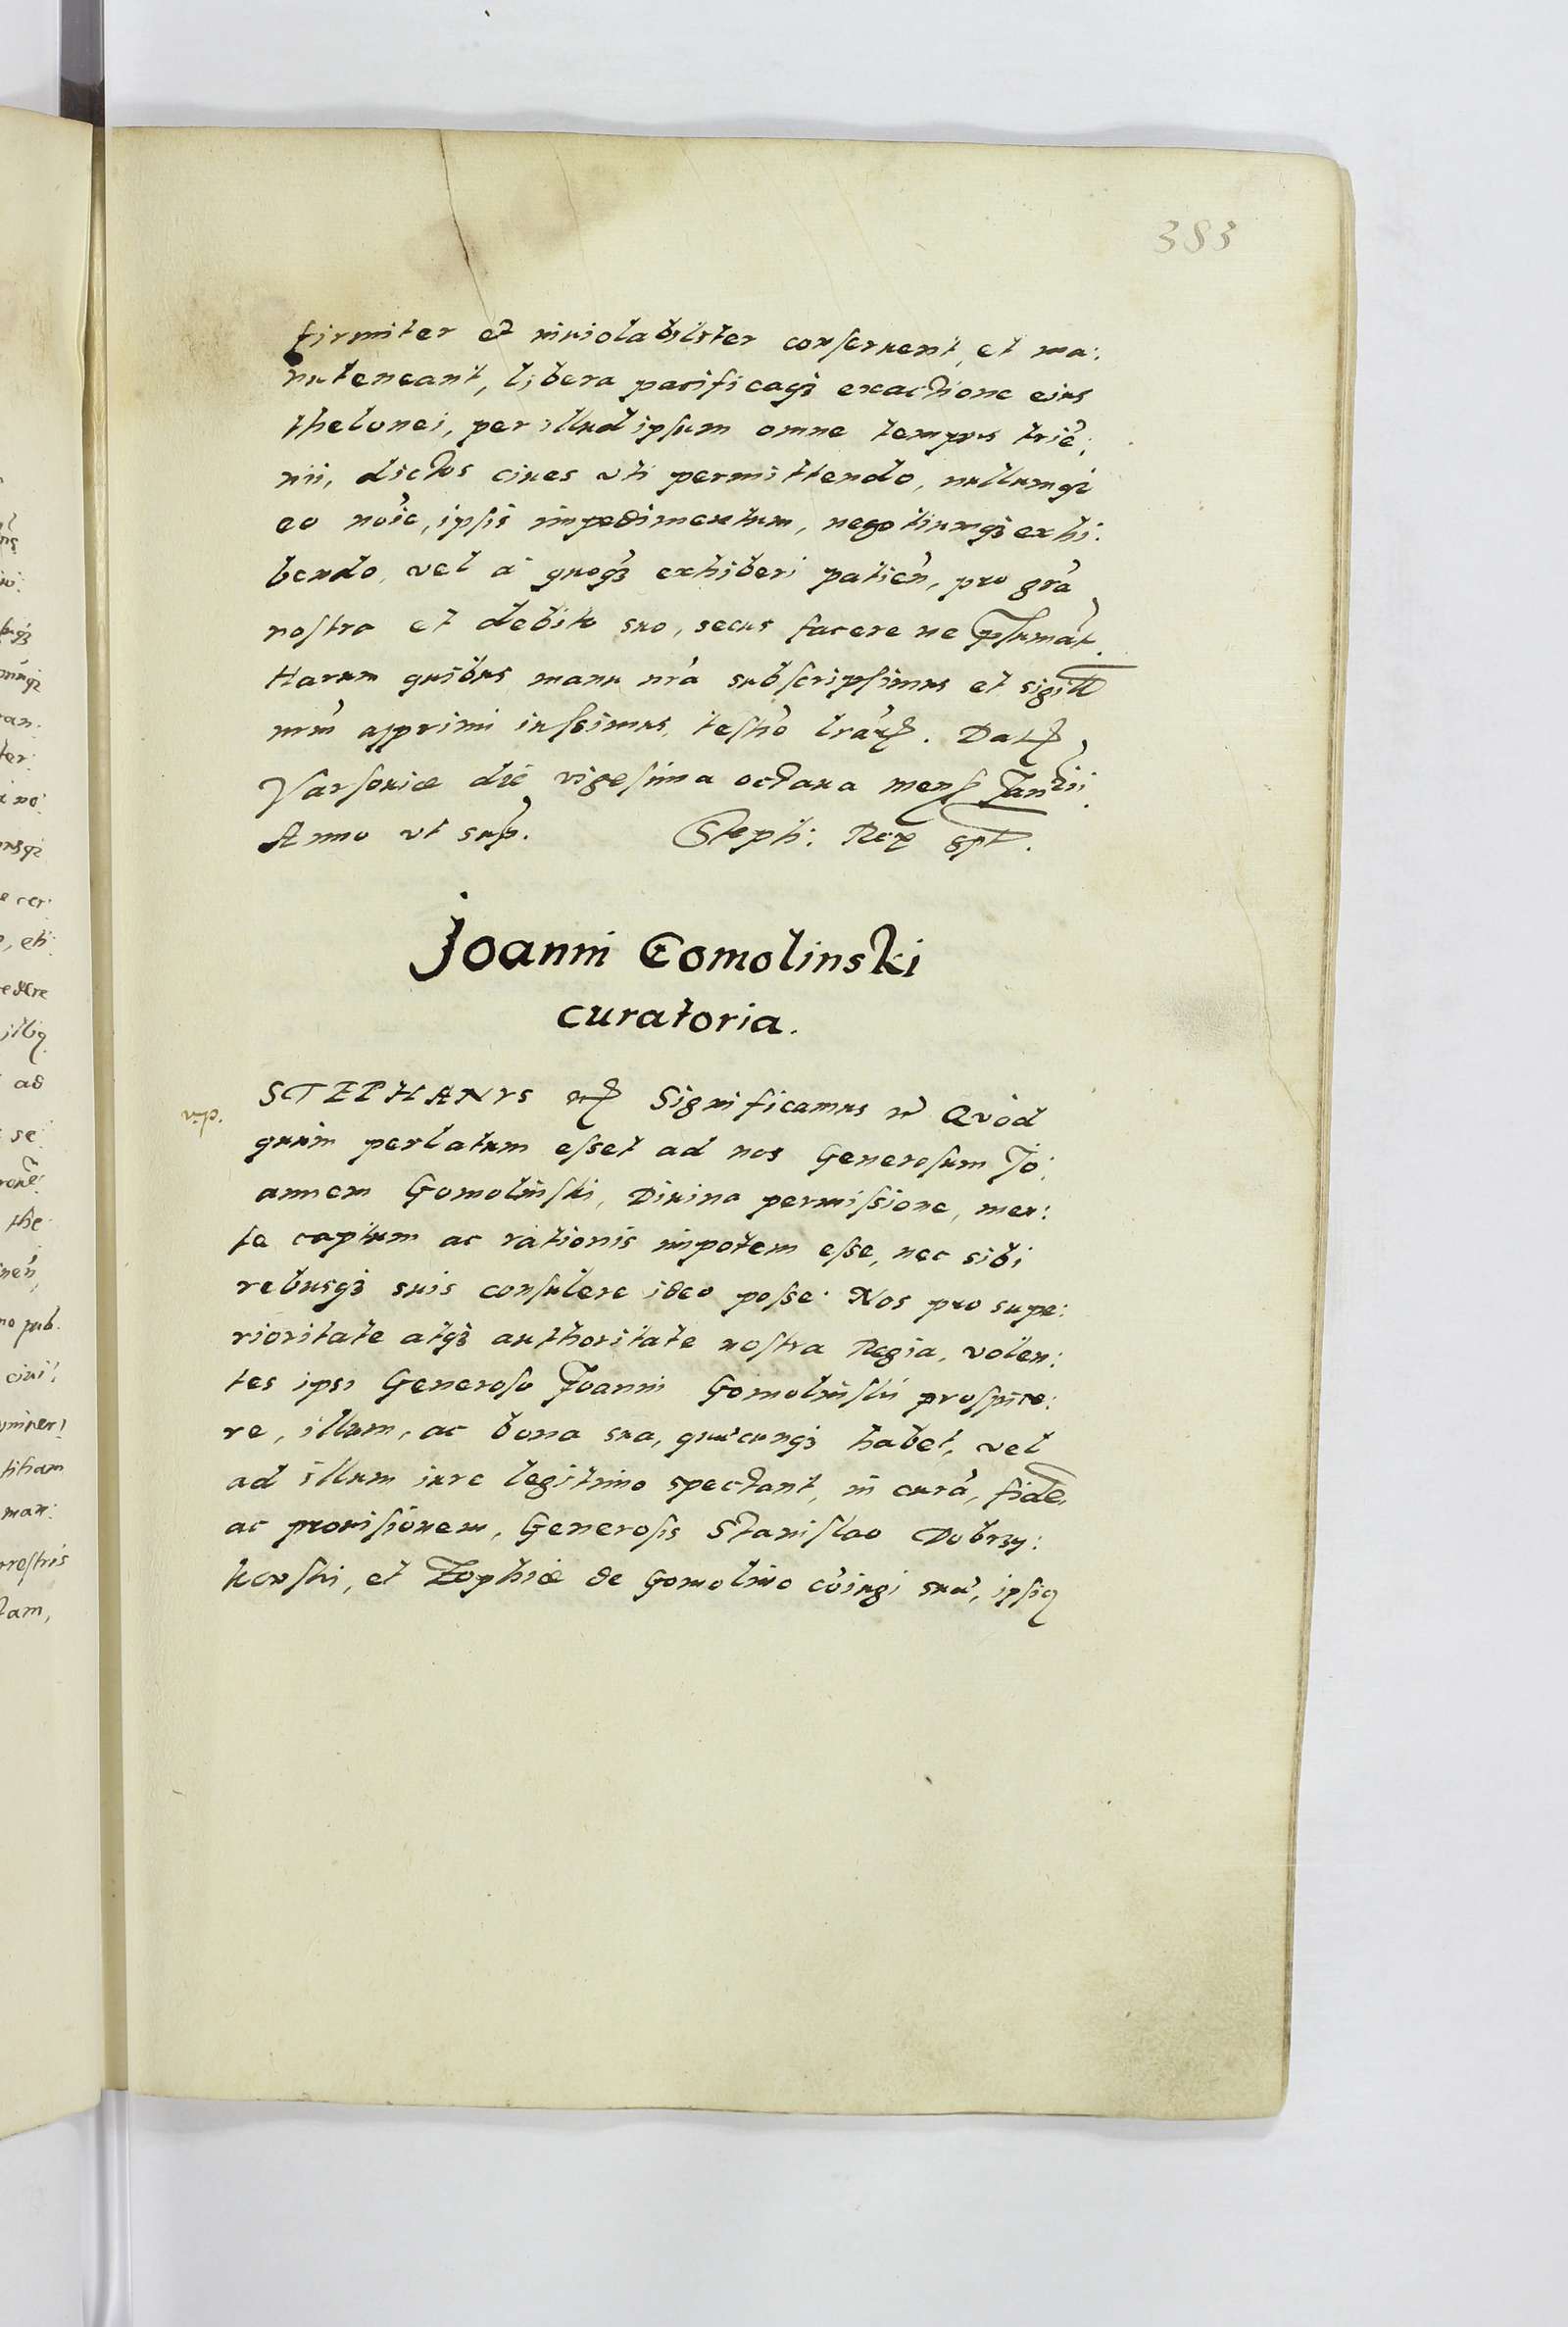 383
firmiter et inuiolabiliter conseruent, et ma:
nuteneant, libera pacificaq3 exactione eius
thelonei, per illud ipsum omne tempus trie͂:
nii, dictos ciues vti permittendo, nullumq3
eo noi͂e, ipsis impedimentum, negotiumq3 exhi:
bendo, vel à quoq3 exhiberi patien͂, pro gr͂a
nostra et debito suo, secus facere ne p͂sumãt.
Harum quibus manu nr͂a subscripsimus et sigill
nr͂m apprimi iussimus, testi͂o lr͂aꝝ. Datꝭ
Varsouiæ die vigesima octaua mensꝭ Ianrii.
Anno vt sup͂. Steph: Rex spt.
Joanni Gomolinski
curatoria.
STEPHANVS etꝭ Significamus etꝭ Quòd
v.p.
quum perlatum esset ad nos Generosum Io:
annem Gomolinski, Diuina permissione, men:
te captum ac rationis impotem esse, nec sibi
rebusq3 suis consulere ideo posse. Nos pro supe:
rioritate atq3 authoritate nostra Regia, volen:
tes ipsi Generoso Joanni Gomolinskii prospice:
re, illum, ac bona sua, quæcunq3 habet, vel
ad illum iure legitimo spectant, in curã, fidẽ,
ac prouisionem, Generosis Stanislao Dobrzy:
kowski, et Zophiæ de Gomolino cõiugi suæ, ipsiq